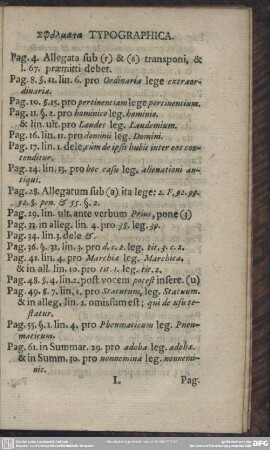 Σφάλματα TYPOGRAPHICA.
Pag. 4. Allegata sub (r) & (s) transponi, &
l. 67. præmitti debet.
Pag. 8. §. 11. lin. 6. pro Ordinaria lege extraor-
dinaria.
Pag. 10. §. 15. pro pertinentiam lege pertinentium.
Pag. 11. §. 2. pro hominico leg. hominio.
& lin. ult. pro Lander leg. Laudemium.
Pag. 16. lin. 11. pro dominii leg. Domini.
Pag. 17. lin. 1. dele, cum de
contenditur.
Pag. 24. lin. 13. pro hoc casu leg. alienationi an-
tiqui.
Pag. 28. Allegatum sub (a) ita lege: 2. F.
52. §. pen. & 55. §. 2.
Pag. 29. lin. ult. ante verbum Prius, pone (3)
Pag. 33. in alleg. lin. 4. pro 38. leg. 39.
Pag. 34. lin. 3. dele &.
Pag. 36. §. 32. lin. 3. pro d. c. 2. leg. tit. 3. c. 2.
Pag. 41. lin. 4. pro Marchiæ leg. Marchica,
& in all. lin. 10. pro tit. 1. leg. tit. 2.
Pag. 48. §. 4. lin. 2. post vocem potest insere. (u)
Pag. 49. §. 7. lin. 1. pro Statutum, leg. Statuum.
& in alleg. lin. 2. omissum est; qui de usu te-
statur.
Pag. 55. §. 1. lin. 4. pro Pheumaticum leg. Pneu-
maticum.
Pag. 61. in Summar. 29. pro adoba leg. adoha.
& in Summ. 30. pro nonnemina leg. nonnemi-
nis.
L Pag.
DFG